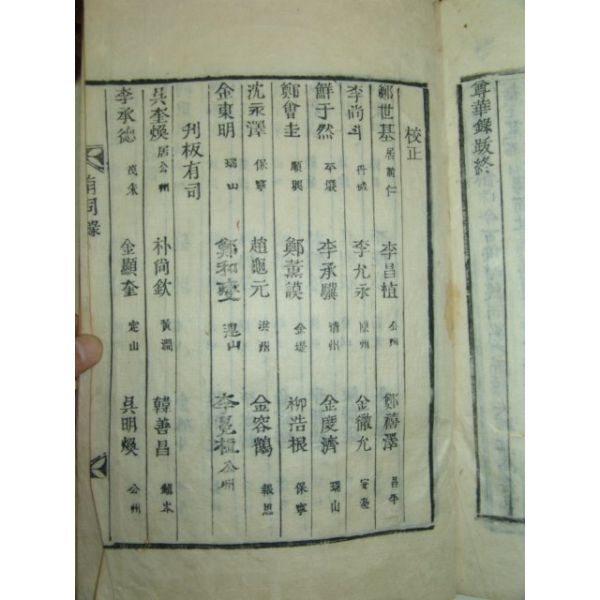 尊華錄跋終
校正
鄭世基 居懷仁 李昌植 公州 鄭 澤 昌平
李尚斗 丹城 李允永 金徹允
鮮于然 平壤 李承驥 清州 金慶濟 瑞山
鄭會圭 順興 鄭薰謨 金堤 柳浩根 保寧
沈永澤 保寧 趙龜元 洪州 金容鶴 報恩
金東明 瑞山 鄭和燮 李冕植 公州
刋板有司
吳奎煥 居公州 朴尙欽 黃澗 韓善昌 鎭岑
李承德 茂朱 金顯奎 定山 吳明煥 公州
有司錄